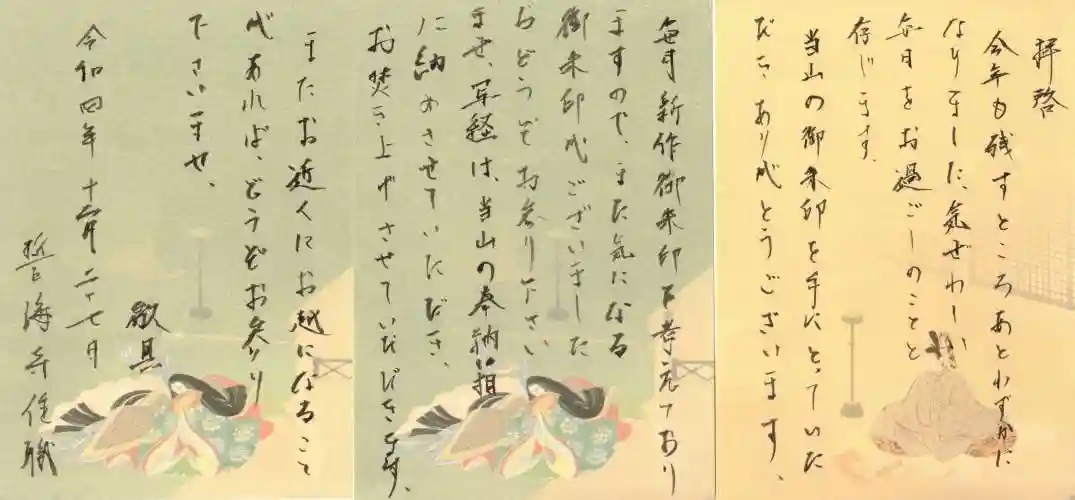 拝啓
今年も残すところあとわずかに
なりました、気ぜわしい
毎日をお過ごしのことと
存じます。
当山の御朱印を手にとっていた
だき ありがとうございます。
毎月 新作御朱印を考えており
ますので、また気になる
御朱印がございました
らどうぞお参り下さい
ませ、写経は、当山の奉納
に納めさせていただき、
お焚き上げさせていただきます。
またお近くにお越になること
があれば、どうぞお参り
下さいませ、
敬具
令和四年 十二月二十七日
誓海寺住職